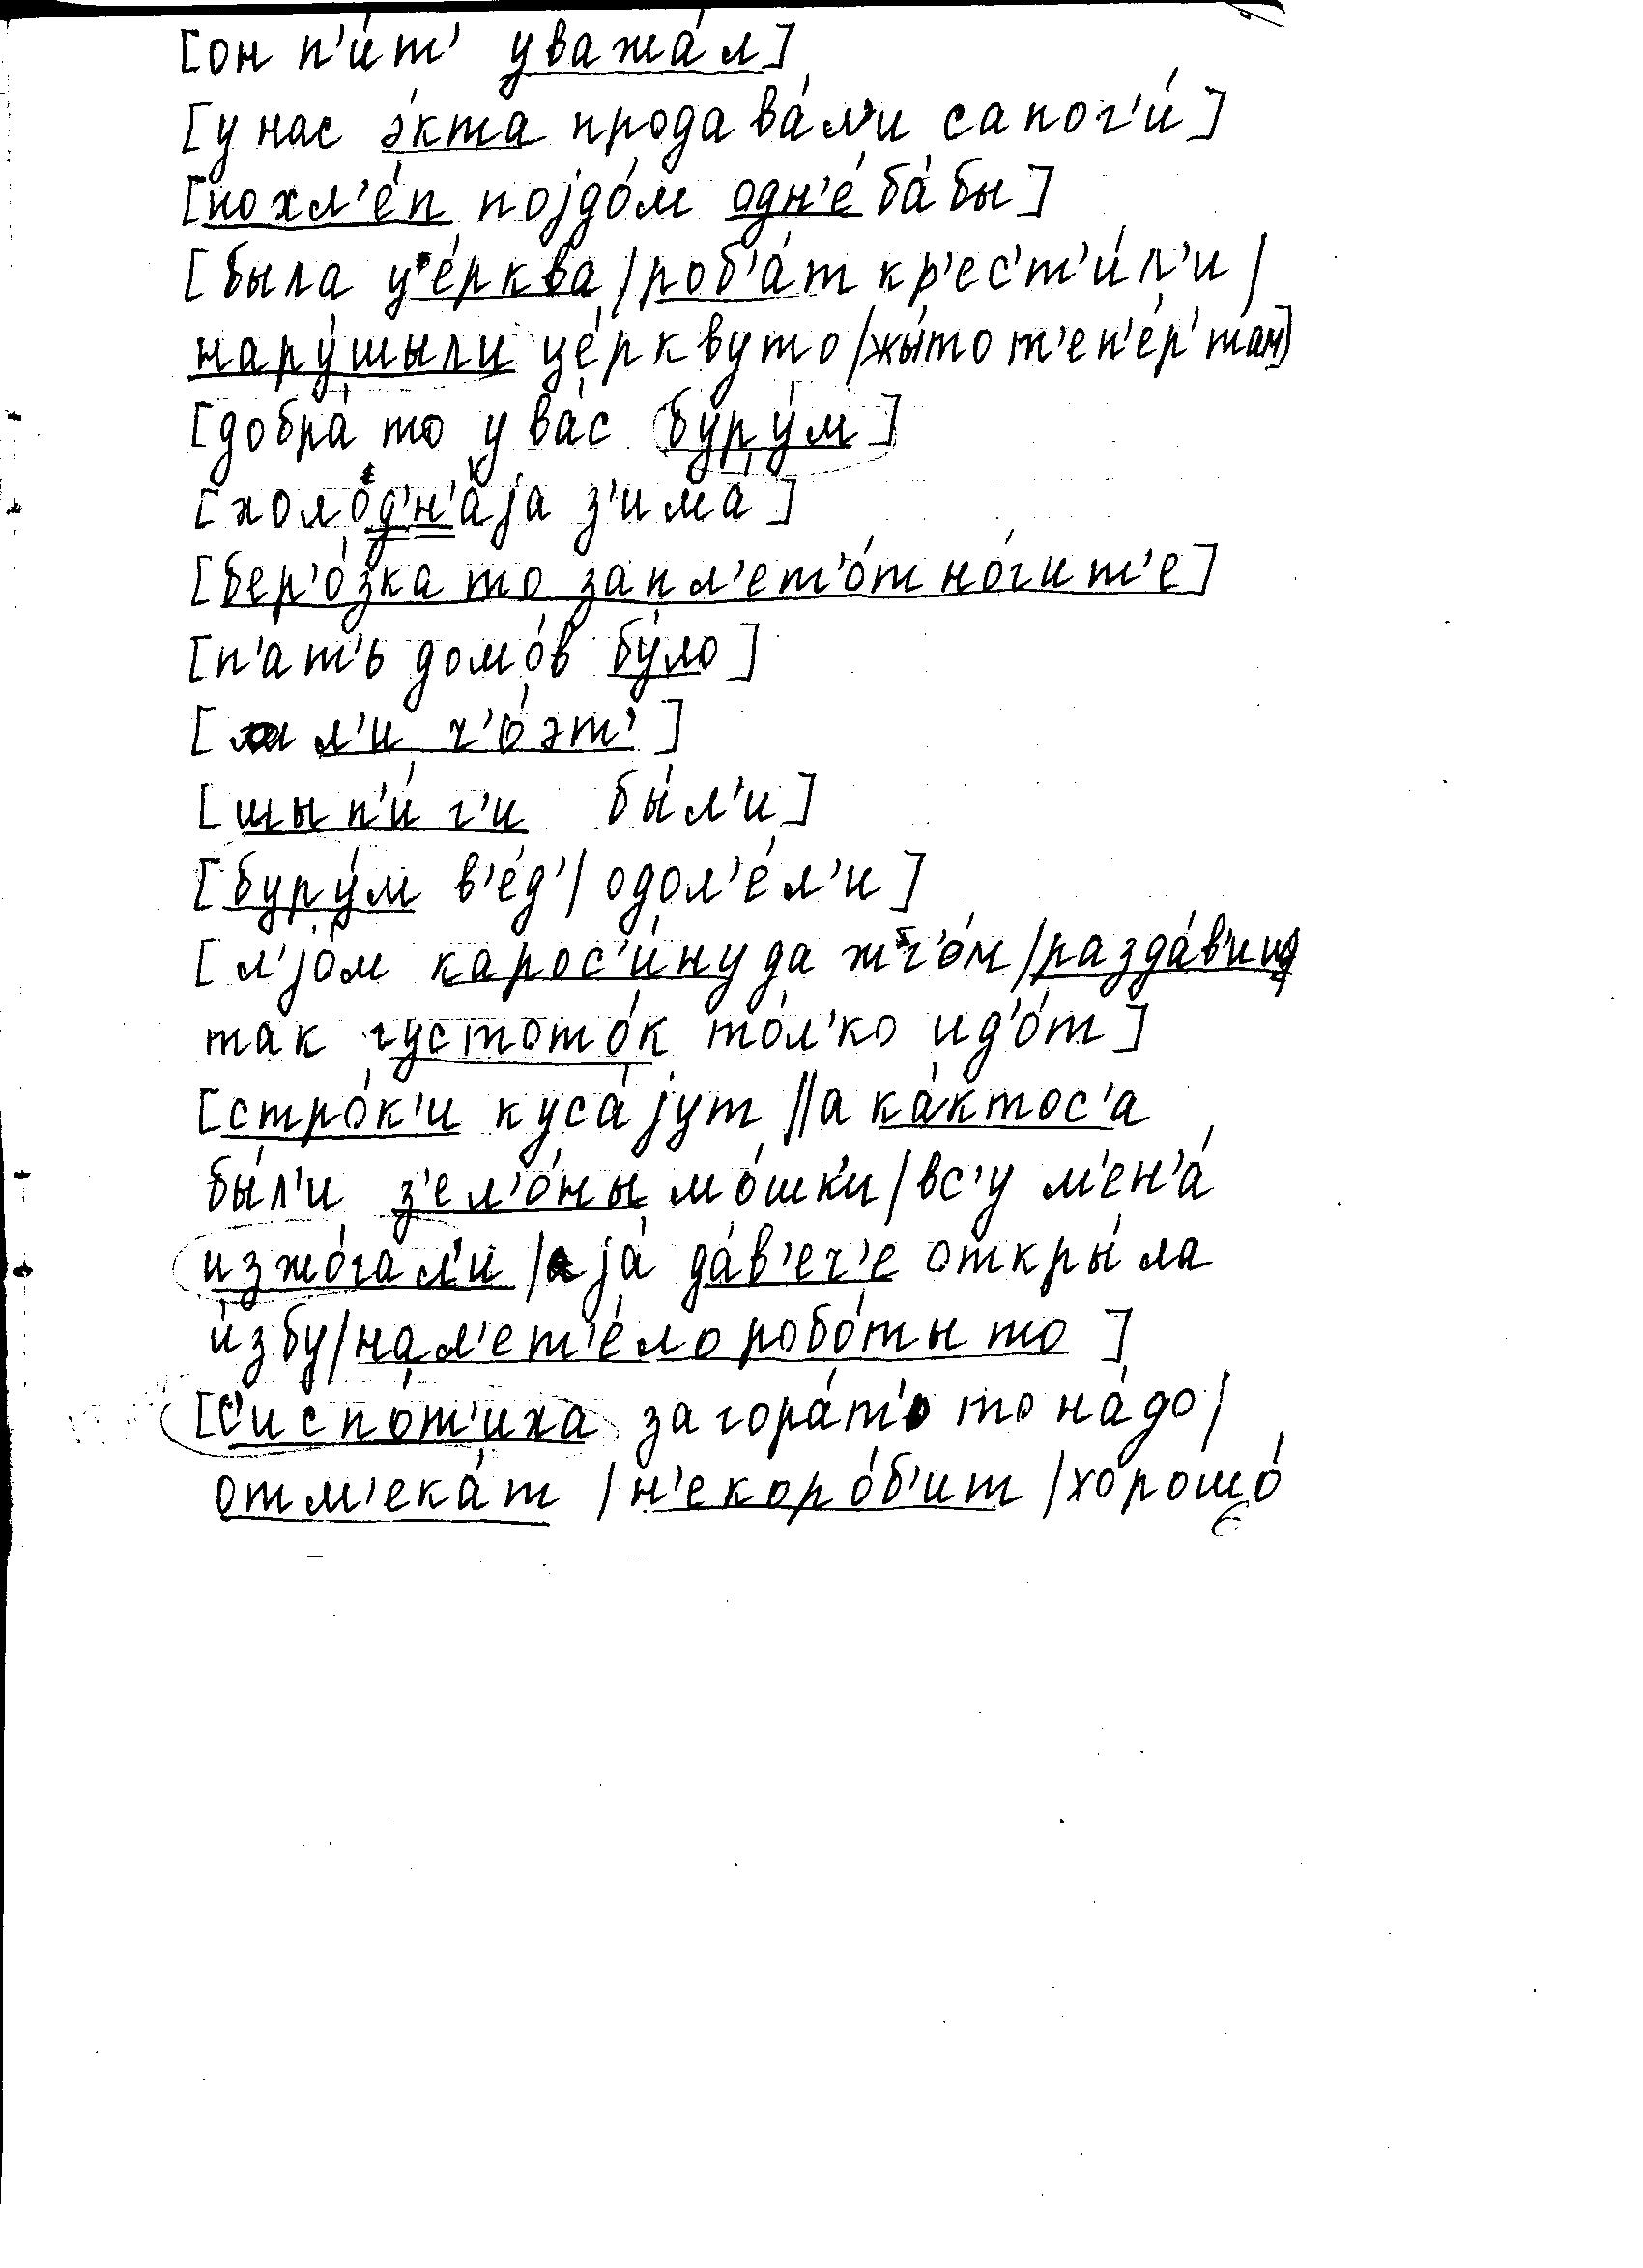 [он п'и́т' уважа́л]
[у нас э́кта продава́л'и сапог'и́]
[похл'е́п поjдо́м одн'е́ ба́бы]
[была ц'е́рква / роб'а́т кр'ес'т'и́л'и /
нару́шыли це́ркву то / жы́то т'еп'е́р' там]
[добра́ то у ва́с буру́м]
[холо́д'н'аjа з'има́]
[бер'о́зка то запл'ет'о́т но́ги т'е]
[п'ат'ь домо́в бу́ло]
[л'и ч'о́ эт']
[шып'и́г'и бы́л'и]
[буру́м в'е́д' / одол'е́л'и]
[л'jо́м карос'и́ну да жг'о́м / разда́в'иш
так густото́к то́л'ко ид'о́т]
[стро́к'и куса́jут || а ка́ктос'а
бы́л'и з'ел'о́ны мо́шк'и / вс'у м'ен'а́
изжо́гал'и / jа́ да́в'еч'е откры́ла
и́збу / нал'ет'е́ло робо́ты то]
[с'испо́т'иха загора́т' то на́до /
отм'ека́т / н'екоро́б'ит / хорошо́
6